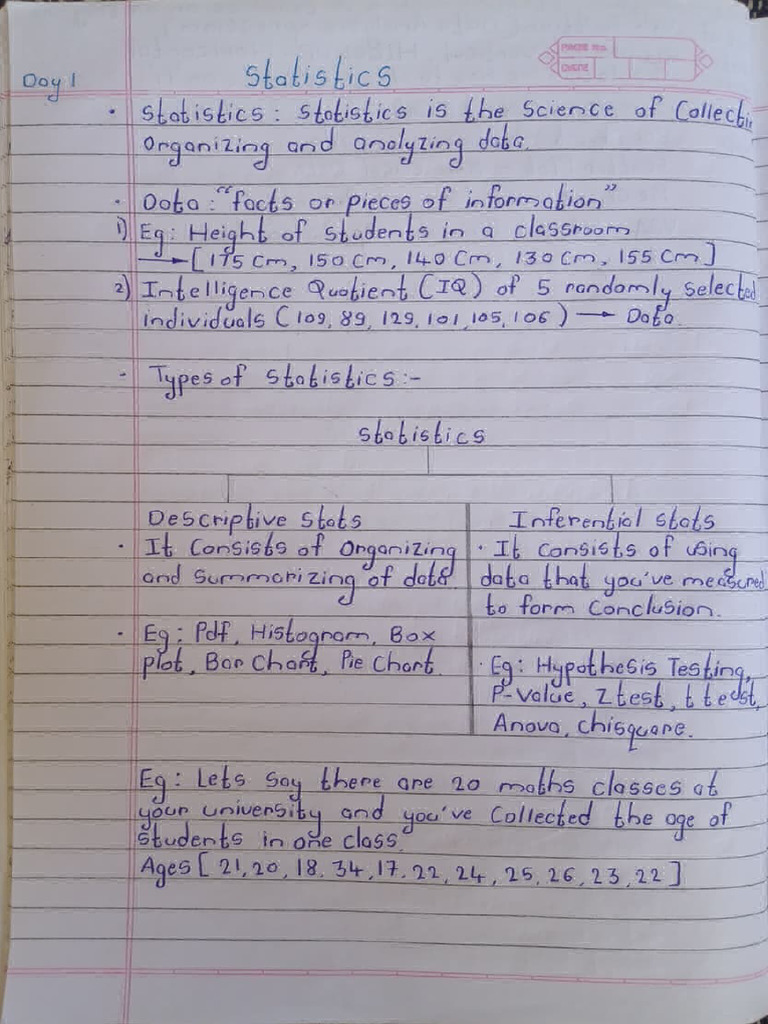 PAGE No.
DATE
Day 1
Statistics
• Statistics : Statistics is the Science of Collectin
Organizing and analyzing data.
• Data : "facts or pieces of information"
1) Eg: Height of students in a classroom
→ [175 Cm, 150 Cm, 140 Cm, 130 Cm, 155 Cm]
2) Intelligence Quotient (IQ) of 5 randomly selected
individuals (109, 89, 129, 101, 105, 106) → Data.
• Types of Statistics :-
Statistics
Descriptive Stats
• It Consists of Organizing
and Summarizing of data
• Eg: Pdf, Histogram, Box
plot, Bar Chart, Pie Chart.
Inferential stats
• It consists of using
data that you've measured
to form Conclusion.
• Eg: Hypothesis Testing,
P-value, Z test, t test,
Anova, chisquare.
Eg: Lets say there are 20 maths classes at
your university and you've Collected the age of
students in one class.
Ages [21, 20, 18, 34, 17, 22, 24, 25, 26, 23, 22]